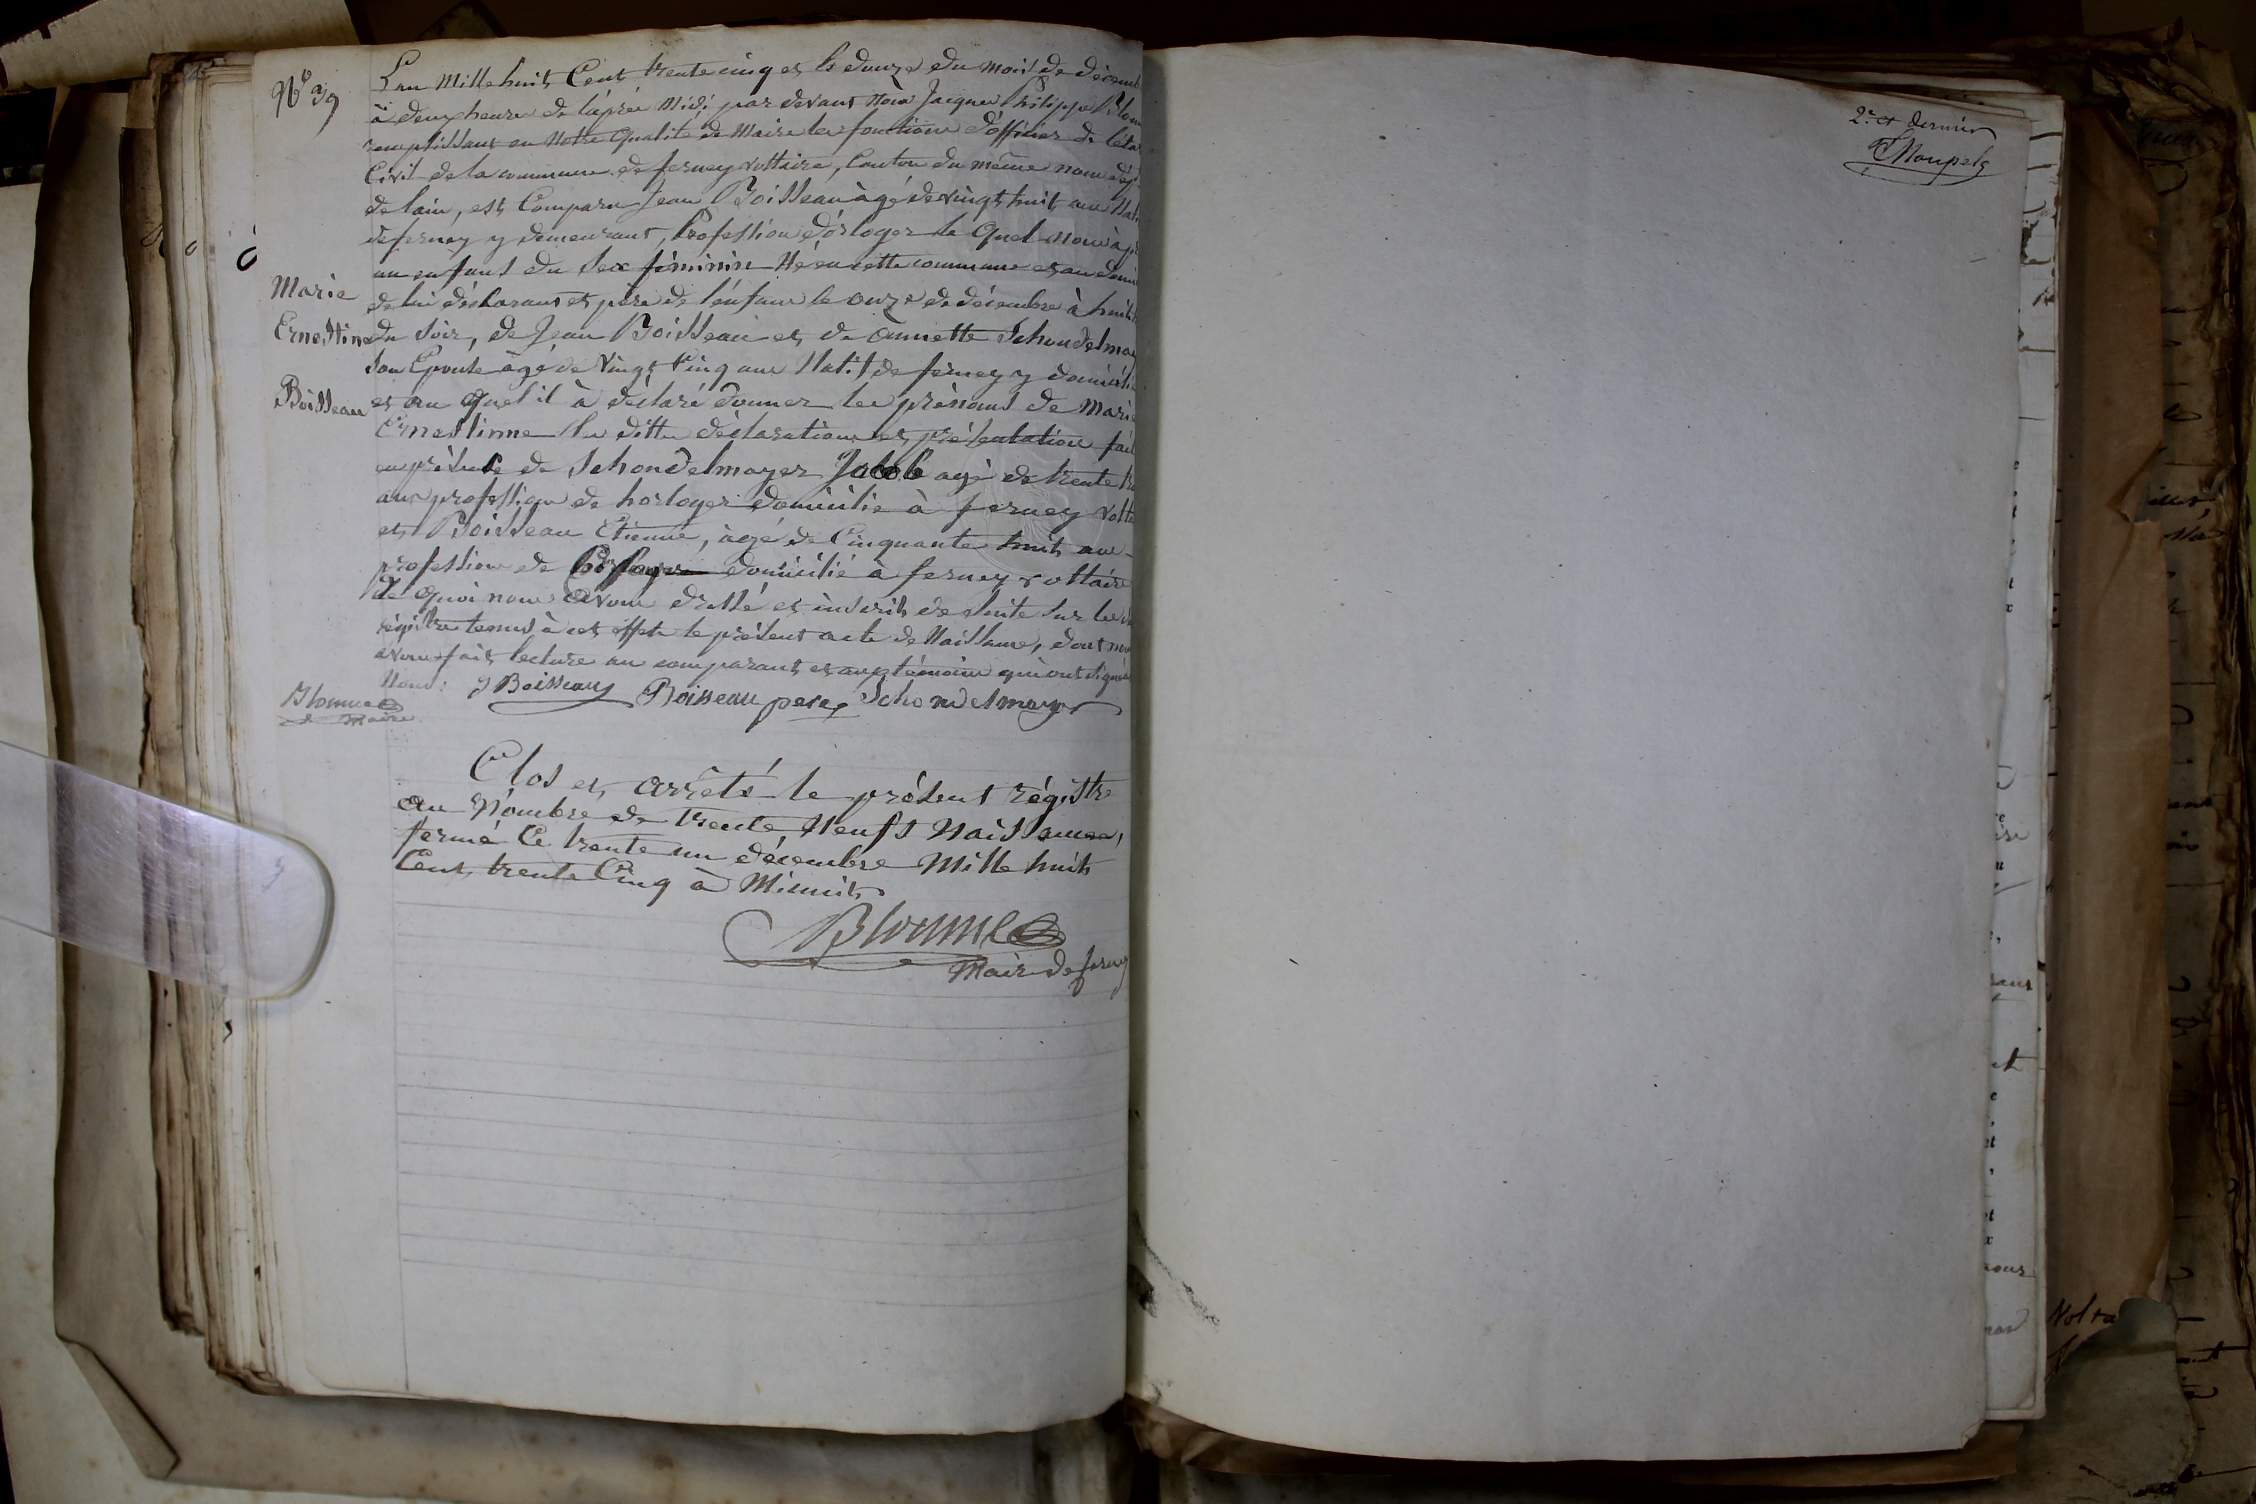 N° 39
Marie
Ernestine
Boisseau
L'an Mille huit Cent trente cinq et le douze du mois de décemb
à deux heure de laprée Midi par devant Nous Jacques Philippe Blon
remplissant en Notre Qualité de Maire les fonctions d'officier de l'éta
Civil de la commune de ferney voltaire, Canton du même nom dép
de lain, est Comparu Jean Boisseau àgé de vingt huit ans Nati
de ferney y demeurant, Profession d'orloger le Quel nous à
un enfant du Sex féminin Né en cette commune et au domi
de lui déclarant et père de l'énfant le onze de décembre à huit
du Soir, de Jean Boisseau et de annette Schondelmay
Son Epouse àgé de Vingt Cinq ans Natif de ferney y domicilié
et au Quel il à déclaré donner les prénoms de Marie
Ernestinne les dittes déclarations et présentation fait
en présence de Schondelmayer Jacob agé de trente
ans profession de horloger domicilié à ferney volta
et Boisseau Etienne, àgé de Cinquante huit ans
profession de domicilié à ferney voltaire
de Quoi nous avons dressé et inscrit de Suite Sur les
régistre tenus à cet effet le présent acte de Naissance, dont nous
avons fait lecture au comparant et aux témoins qui ont Signé
Nous: J Boisseau Boisseau pere Schondelmayer
Maire
Clos et arrêté le présent régistre
au Nombre de trente Neufs Naissances,
fermé Ce trente un décembre Mille huit
Cent trente Cinq à Minuit
Maire de ferney
2e et dernier